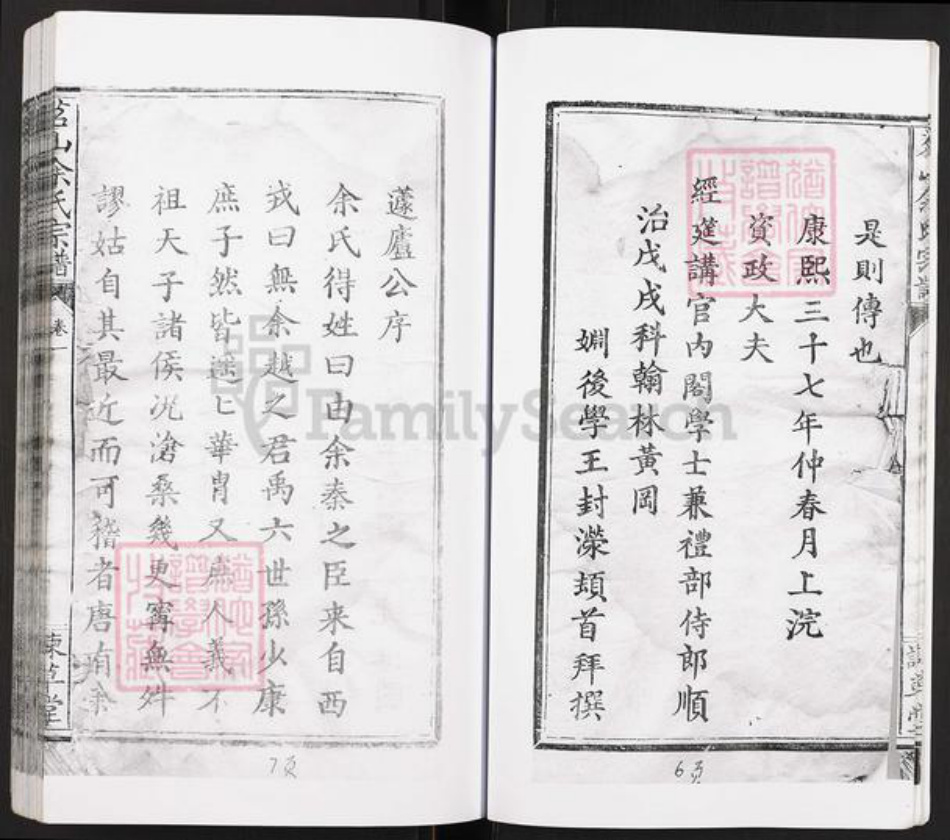 是則傳也
康熙三十七年仲春月上浣
資政大夫
經筵講官內閣學士兼禮部侍郎順
治戊戌科翰林黃岡
姻後學王封濚頓首拜撰
6页
蘧廬公序
余氏得姓曰由余秦之臣来自西
戎曰無余越之君禹六世孫少康
庶子然皆遥七華胄又庶人義不
祖天子諸侯况滄桑幾更寧無舛
謬姑自其最近而可稽者唐有余
山余氏宗譜
卷一
草堂
7页
FamilySearch